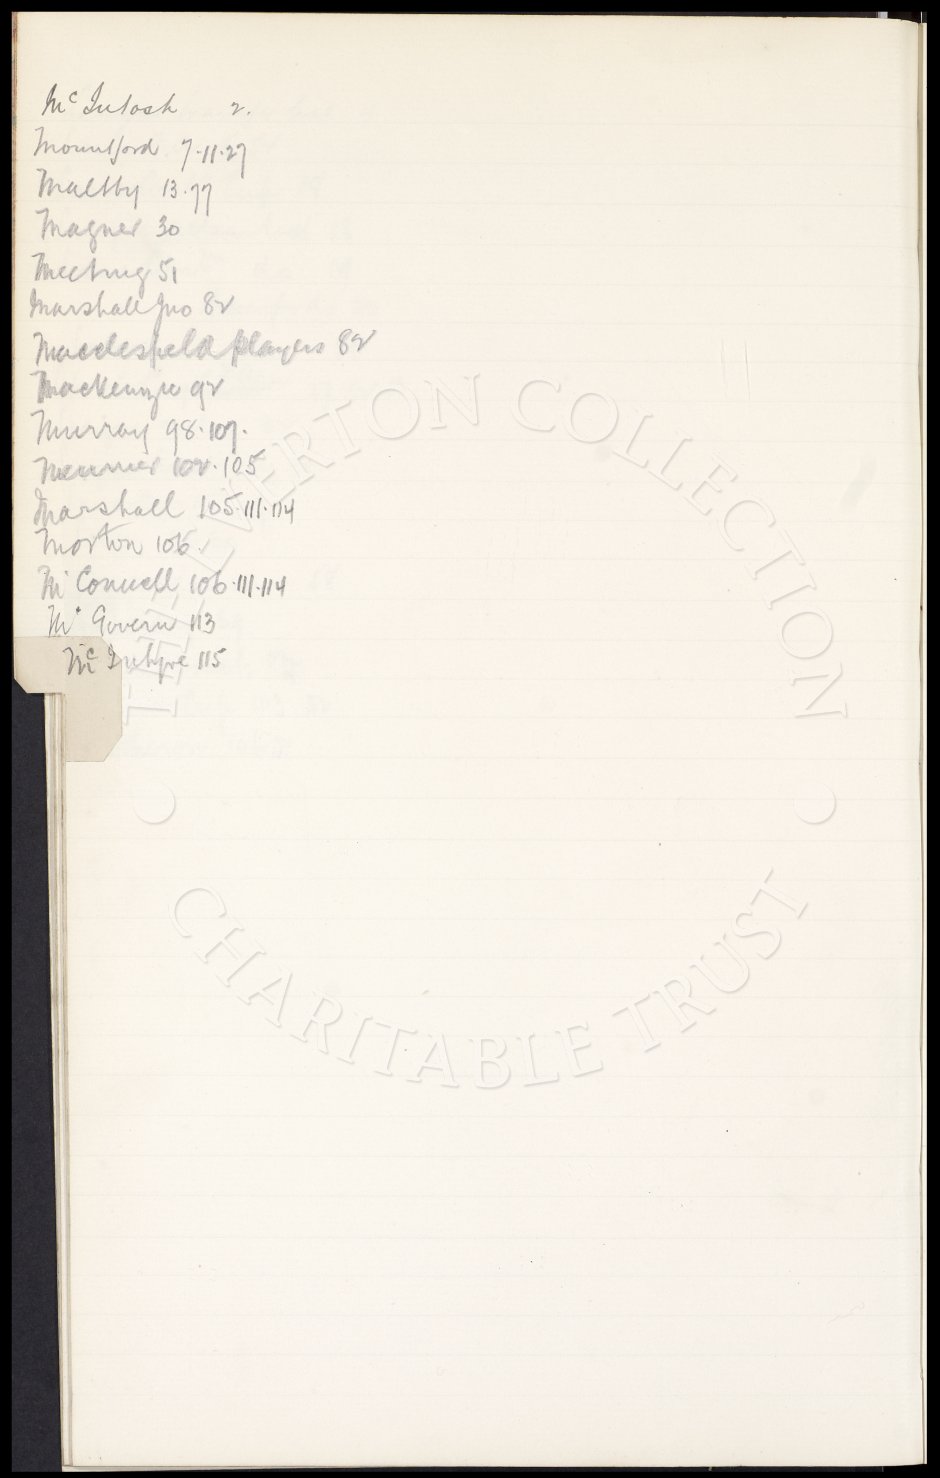 Mc Intosh 2.
Mountford 7.11.27
Maltby 13.77
Magner 30
Meeting 51
Marshall Jno 82
Macclesfield players 82
Mackenzie 92
Murray 98.107.
102.105
Marshall 105.111.114
Morton 106.
Mc Connell 106.111.114
Mc Govern 113
Mc Intyre 115
THE EVERTON COLLECTION
CHARITABLE TRUST